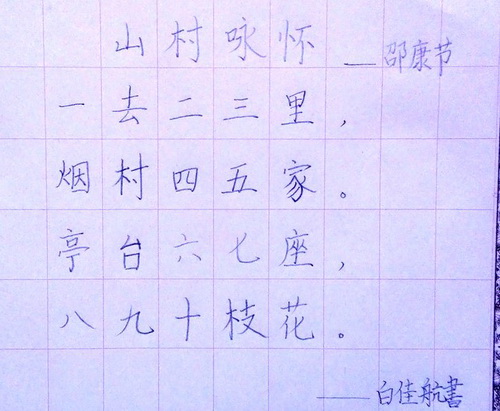 山村咏怀 ——邵康节
一去二三里，
烟村四五家。
亭台六七座，
八九十枝花。
——白佳航書